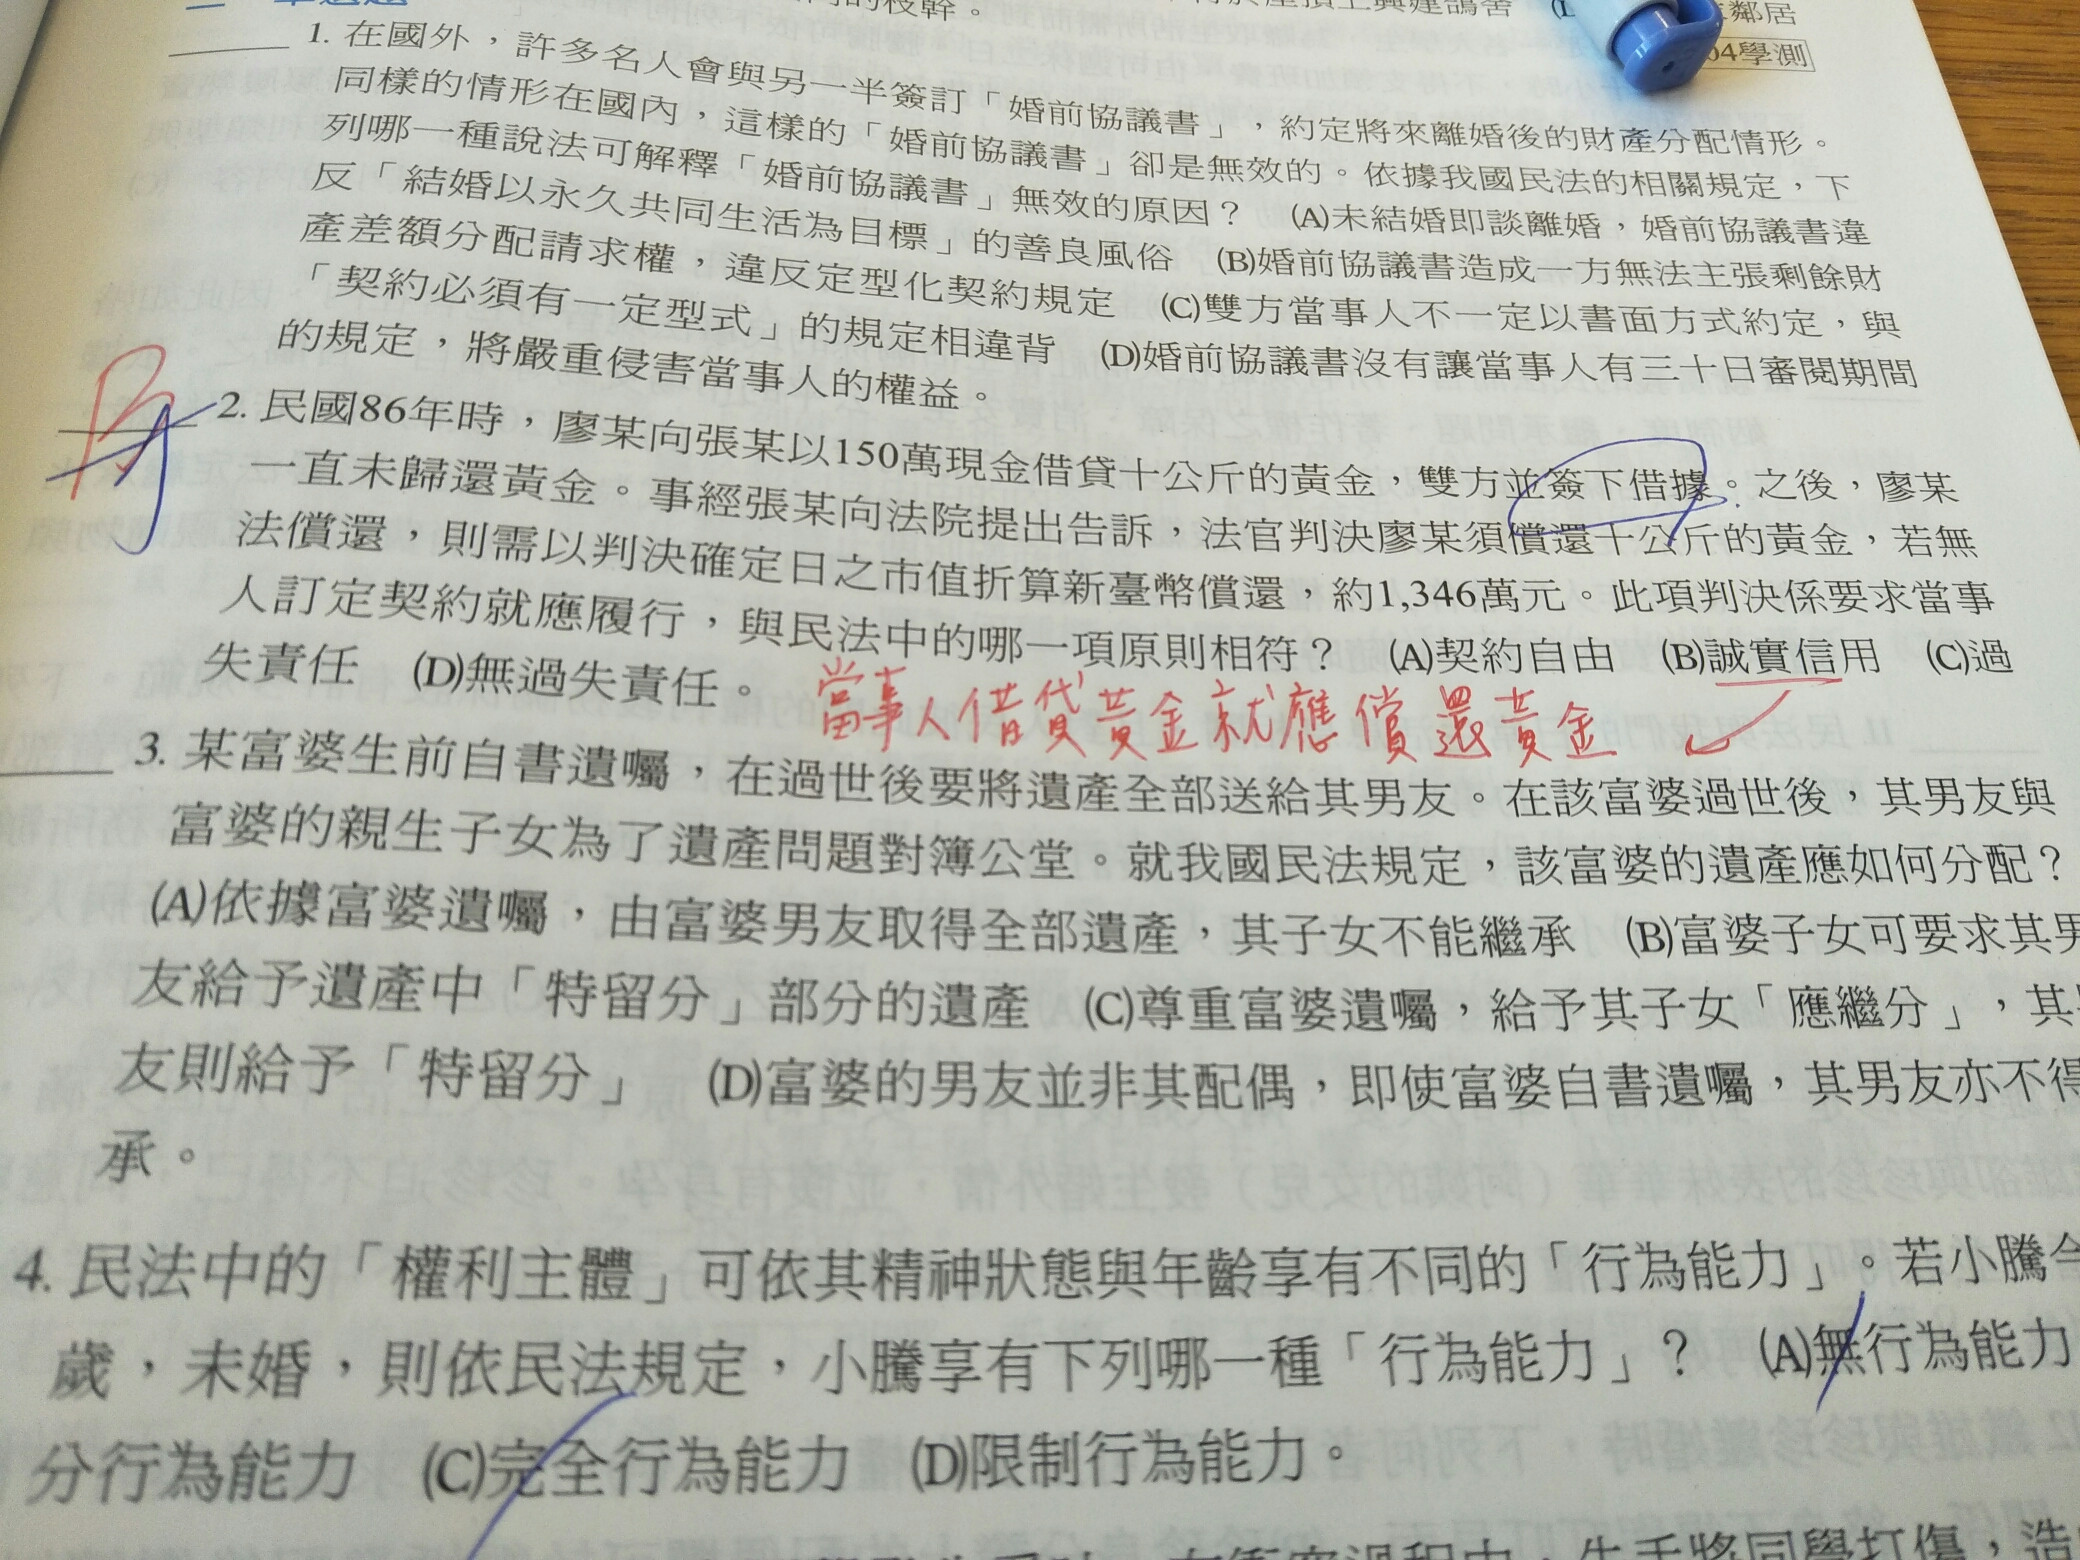 的枝幹。
鄰居
04學測
1. 在國外，許多名人會與另一半簽訂「婚前協議書」，約定將來離婚後的財產分配情形。
同樣的情形在國內，這樣的「婚前協議書」卻是無效的。依據我國民法的相關規定，下
列哪一種說法可解釋「婚前協議書」無效的原因？ (A)未結婚即談離婚，婚前協議書違
反「結婚以永久共同生活為目標」的善良風俗 (B)婚前協議書造成一方無法主張剩餘財
產差額分配請求權，違反定型化契約規定 (C)雙方當事人不一定以書面方式約定，與
「契約必須有一定型式」的規定相違背 (D)婚前協議書沒有讓當事人有三十日審閱期間
的規定，將嚴重侵害當事人的權益。
B A 2. 民國86年時，廖某向張某以150萬現金借貸十公斤的黃金，雙方並簽下借據。之後，廖某
一直未歸還黃金。事經張某向法院提出告訴，法官判決廖某須償還十公斤的黃金，若無
法償還，則需以判決確定日之市值折算新臺幣償還，約1,346萬元。此項判決係要求當事
人訂定契約就應履行，與民法中的哪一項原則相符？ (A)契約自由 (B)誠實信用 (C)過
失責任 (D)無過失責任。
當事人借貸黃金就應償還黃金
3. 某富婆生前自書遺囑，在過世後要將遺產全部送給其男友。在該富婆過世後，其男友與
富婆的親生子女為了遺產問題對簿公堂。就我國民法規定，該富婆的遺產應如何分配？
(A)依據富婆遺囑，由富婆男友取得全部遺產，其子女不能繼承 (B)富婆子女可要求其男
友給予遺產中「特留分」部分的遺產 (C)尊重富婆遺囑，給予其子女「應繼分」，其
友則給予「特留分」 (D)富婆的男友並非其配偶，即使富婆自書遺囑，其男友亦不得
承。
4. 民法中的「權利主體」可依其精神狀態與年齡享有不同的「行為能力」。若小騰今
歲，未婚，則依民法規定，小騰享有下列哪一種「行為能力」？ (A)無行為能力
分行為能力 (C)完全行為能力 (D)限制行為能力。